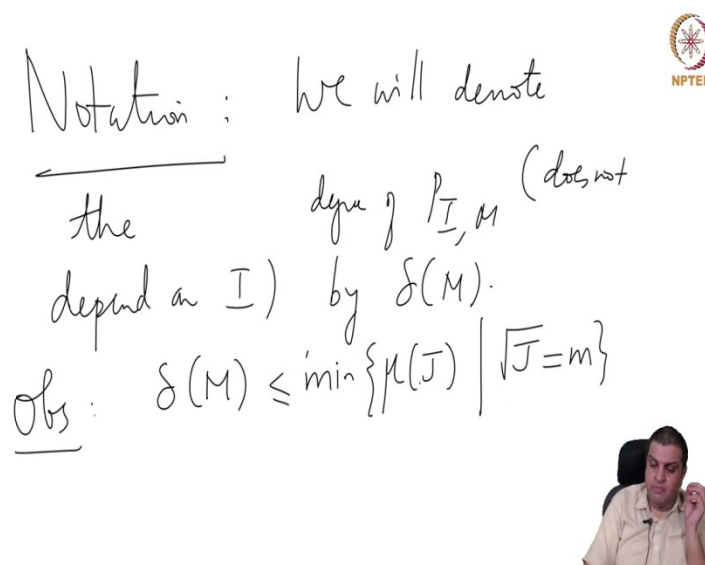 NPTEL
Notation : We will denote
the degree of P_{I,M} (does not
depend on I) by δ(M).
Obs : δ(M) ≤ min{μ(J) | √J = m}